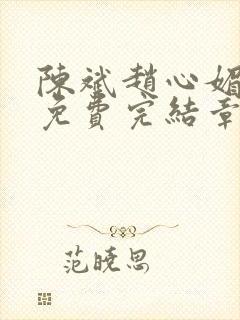 陳斌趙心媚
免費完結章
范曉思